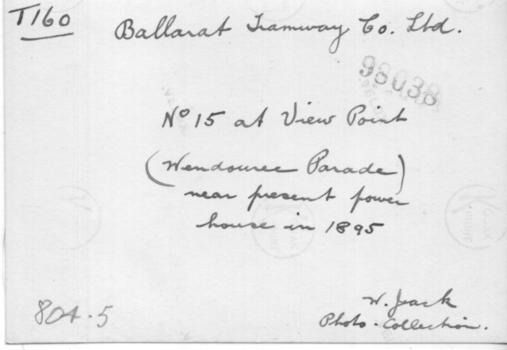 T160
Ballarat Tramway Co. Ltd.
98038
No 15 at View Point
(Wendouree Parade)
near present power
house in 1895
804.5
W. Jack
Photo - Collection.